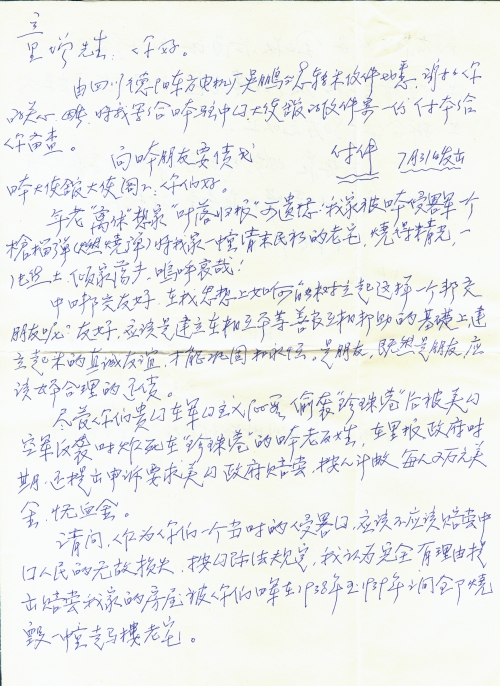 童
里增先生：你好。
由四川德阳东方电机厂吴鹏 转来收件 悉，谢 你
的关心 ，将我寄给日本驻中国大使馆的收件寄一份付本给
你审查。
向日本朋友要债书
付件 7月31日发出
日本大使馆大使阁下：你们好。
年老"离休"想家"叶落归根"可遗憾：我家被日本侵略军一个
枪榴弹(燃烧弹)将我家一幢清末民初的老宅，烧得精光，一
片 土，倾家荡 ，呜呼哀哉！
中日邦交友好，在我思想上如何能树立起这样一个邦交
朋友呢？友好，应该是建立在相互平等善良互相帮助的基礎上，建
立起来的真诚友谊，才能巩固和永 。是朋友，既然是朋友，应
该 合理的还债。
尽管你们贵国在军国主义 偷袭"珍珠港"后被美国
空军 袭时炸死在"珍珠港"的日本老百姓，在里根政府时
期，还提出申诉要求美国政府赔尝，按人计 每人 万元美
金，怃 金。
请问，作为你们一个当时的侵略国，应该不应该赔尝中
国人民的无故损失，按国际法规定，我认为完全有理由提
出赔尝我家的房屋被你们日军在1938年至1939年之间全部烧
毁一幢走马樓老宅。